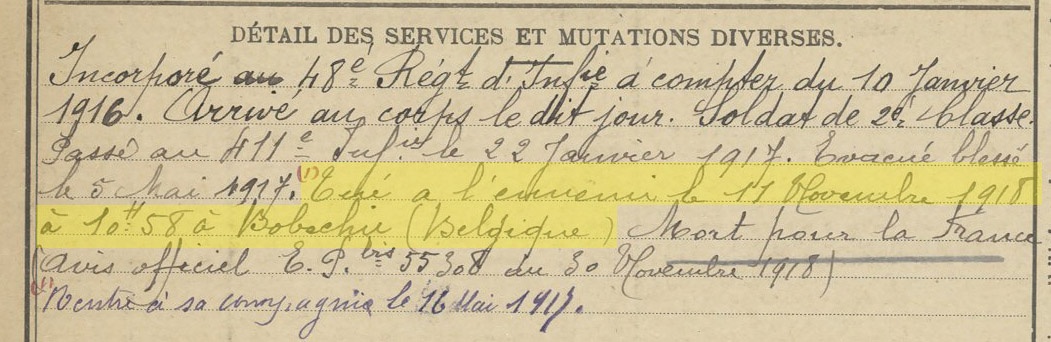 DÉTAIL DES SERVICES ET MUTATIONS DIVERSES.
Incorporé au 48e Régt d'Infie à compter du 10 Janvier
1916. Arrivé au corps le dit jour. Soldat de 2e Classe.
Passé au 411e Infie le 22 Janvier 1917. Evacué blessé
le 5 Mai 1917. (1) Tué a l'ennemi le 11 Novembre 1918
à 10H58 à Bobechu (Belgique) Mort pour la France
(Avis officiel E. P. bis 55308 du 30 Novembre 1918)
(1) Rentré à sa compagnie le 16 Mai 1917.